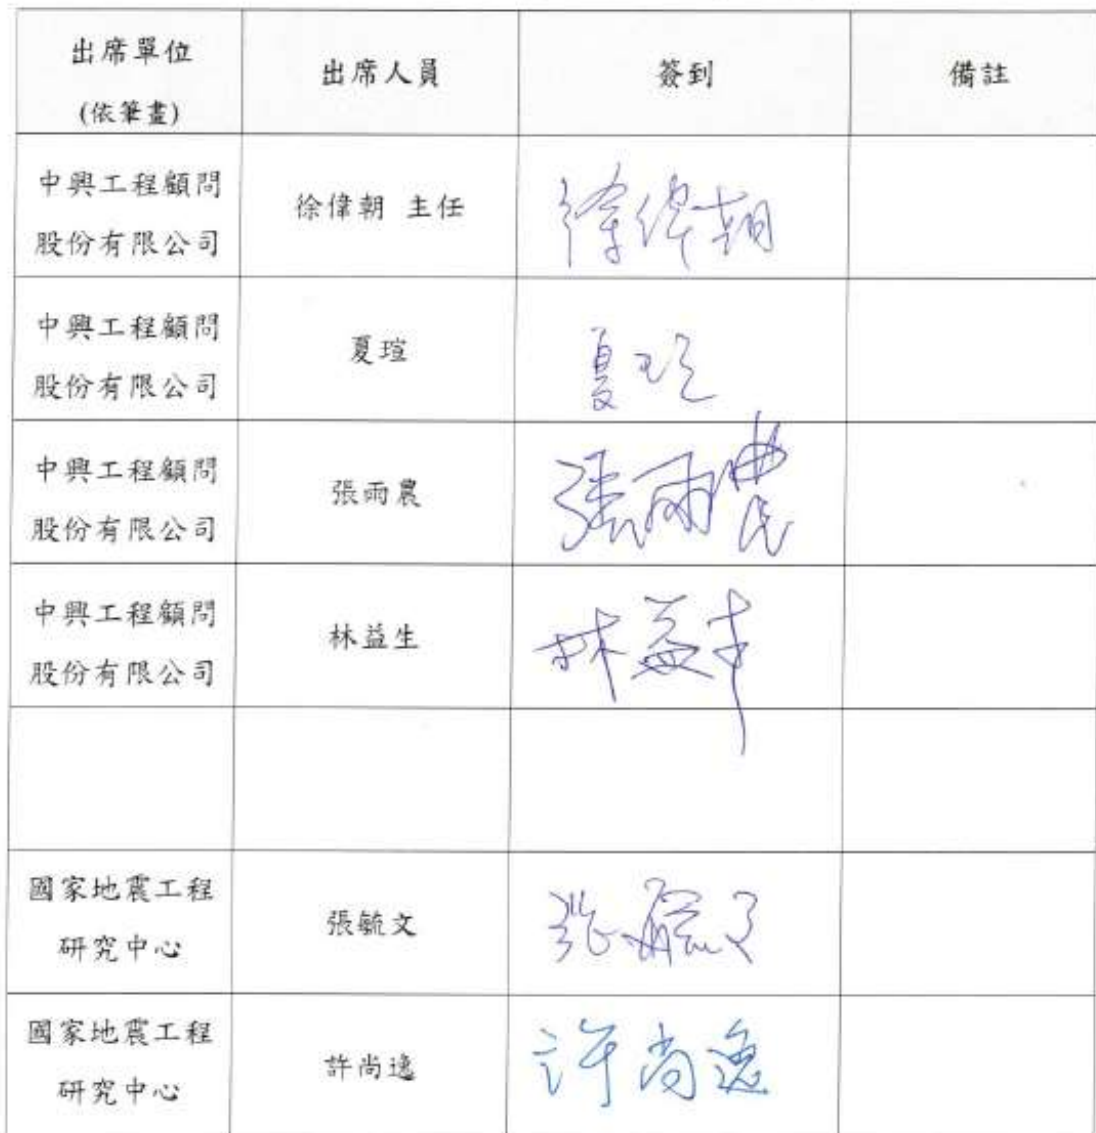 出席單位
(依筆畫)
出席人員
簽到
備註
中興工程顧問
股份有限公司
徐偉朝 主任
徐偉朝
中興工程顧問
股份有限公司
夏瑄
夏瑄
中興工程顧問
股份有限公司
張雨農
張雨農
中興工程顧問
股份有限公司
林益生
林益生
國家地震工程
研究中心
張毓文
張毓文
國家地震工程
研究中心
許尚逸
許尚逸